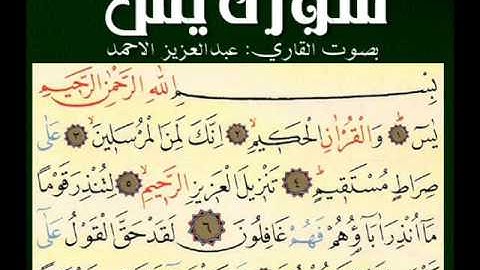 سورة يس
بصوت القاري: عبدالعزيز الاحمد
بِسْمِ اللهِ الرَّحْمٰنِ الرَّحِيْمِ
يٰسٓ ۚ ١ وَالْقُرْاٰنِ الْحَكِيْمِ ۙ ٢ اِنَّكَ لَمِنَ الْمُرْسَلِيْنَ ۙ ٣ عَلٰى
صِرَاطٍ مُّسْتَقِيْمٍ ؕ ٤ تَنْزِيْلَ الْعَزِيْزِ الرَّحِيْمِ ۙ ٥ لِتُنْذِرَ قَوْمًا
مَّاۤ اُنْذِرَ اٰبَآؤُهُمْ فَهُمْ غٰفِلُوْنَ ٦ لَقَدْ حَقَّ الْقَوْلُ عَلٰٓى